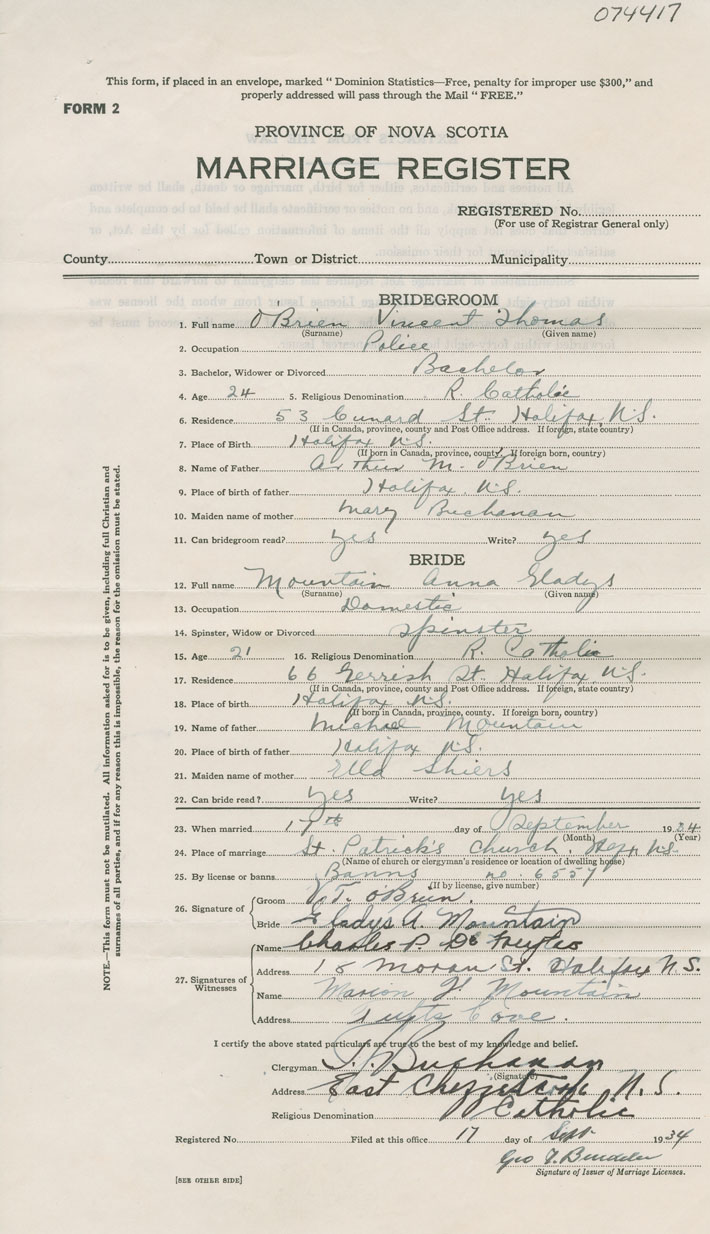 074417
This form, if placed in an envelope, marked "Dominion Statistics—Free, penalty for improper use $300," and
properly addressed will pass through the Mail "FREE."
FORM 2
PROVINCE OF NOVA SCOTIA
MARRIAGE REGISTER
REGISTERED No.
(For use of Registrar General only)
County Town or District Municipality
BRIDEGROOM
1. Full name O'Brien Vincent Thomas
(Surname) (Given name)
2. Occupation Police
3. Bachelor, Widower or Divorced Bachelor
4. Age 24 5. Religious Denomination R. Catholic
6. Residence 53 Cunard St. Halifax, N.S.
(If in Canada, province, county and Post Office address. If foreign, state country)
7. Place of Birth Halifax N.S.
(If born in Canada, province, county. If foreign born, country)
8. Name of Father Arthur M. O'Brien
9. Place of birth of father Halifax N.S.
10. Maiden name of mother Mary Buchanan
11. Can bridegroom read? yes Write? yes
BRIDE
12. Full name Mountain Anna Gladys
(Surname) (Given name)
13. Occupation Domestic
14. Spinster, Widow or Divorced Spinster
15. Age 21 16. Religious Denomination R. Catholic
17. Residence 66 Gerrish St. Halifax N.S.
(If in Canada, province, county and Post Office address. If foreign, state country)
18. Place of birth Halifax N.S.
(If born in Canada, province, county. If foreign born, country)
19. Name of father Michael Mountain
20. Place of birth of father Halifax N.S.
21. Maiden name of mother Ella Shiers
22. Can bride read? yes Write? yes
23. When married 17th day of September 1934
(Month) (Year)
24. Place of marriage St. Patrick's Church, Hfx N.S.
(Name of church or clergyman's residence or location of dwelling house)
25. By license or banns Banns no. 6557
(If by license, give number)
26. Signature of Groom V. T. O'Brien.
Bride Gladys A. Mountain
27. Signatures of Witnesses Name Charles P. De
Address 18 Moran St. Halifax N.S.
Name Marion H. Mountain
Address Tufts Cove.
I certify the above stated particulars are true to the best of my knowledge and belief.
Clergyman Buchanan
(Signature)
Address East Chezzetcook N.S.
Religious Denomination Catholic
Registered No. Filed at this office 17 day of Sept. 1934
Geo
Signature of Issuer of Marriage Licenses.
[SEE OTHER SIDE]
NOTE.—This form must not be mutilated. All information asked for is to be given, including full Christian and
surnames of all parties, and if for any reason this is impossible, the reason for the omission must be stated.